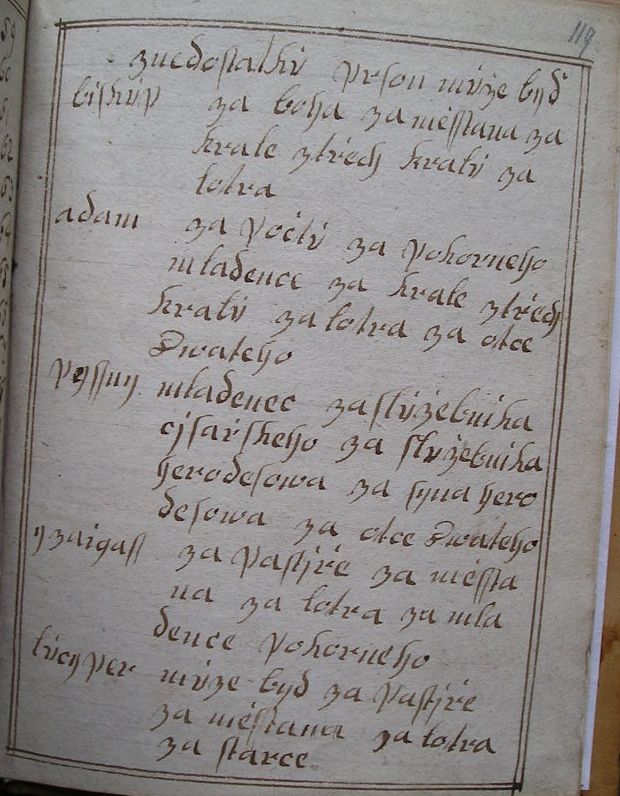 119
znedostatků prson může byd
biskup za boha za mésstana za
krale ztréch kralů za
lotra
adam za počtů za pokorneho
mladence za krale ztréch
kralů za lotra za otce
Swateho
pyssnij mladenec zaslužebnika
cjsařskeho za služebnika
herodesowa za syna hero
desowa za otce Swateho
za pastjře za méssta
na za lotra za mla
dence pokorneho
lucyper může byd za pastjře
za méstana za lotra
za starce